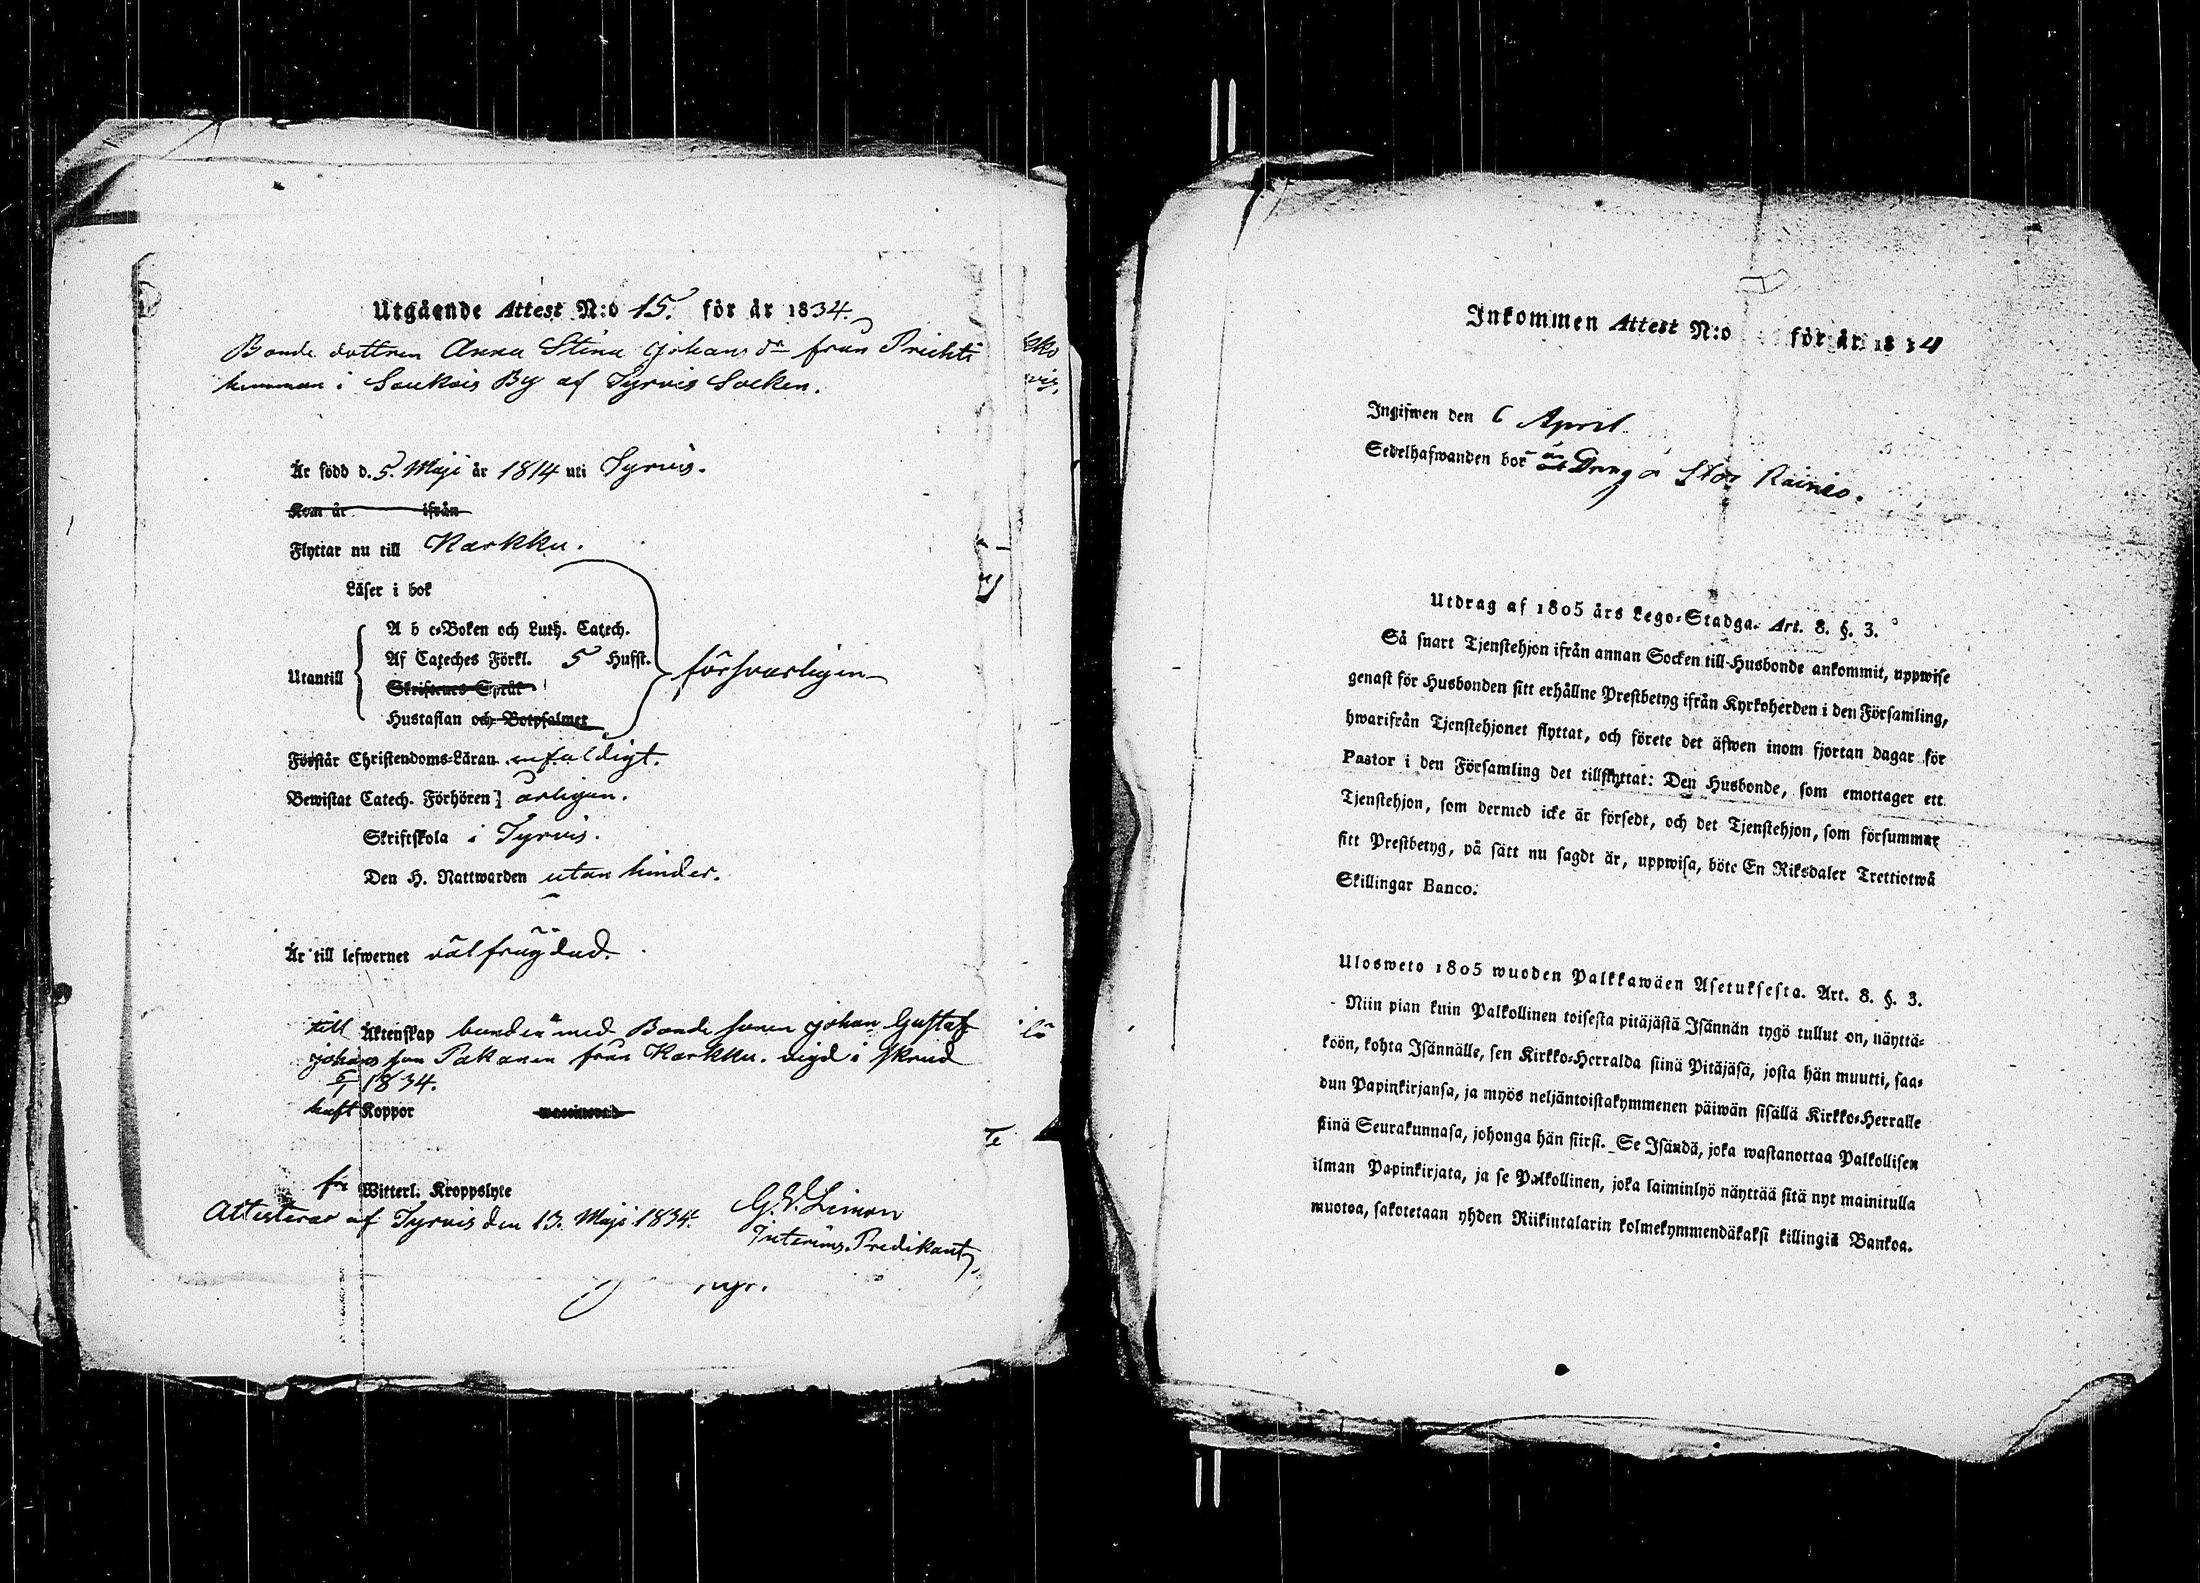 Utgående Attest N:o 15. för år 1834.
Bonde dottren Anna Stina Johans dr från Prichti
hemman i Soukois By af Tyrvis Socken.
Är född d. 5. Maji år 1814 uti Tyrvis.
Kom år ifrån
Flyttar nu till Karkku.
Läser i bok
A b c-Boken och Luth. Catech.
Af Cateches Förkl. 5 Hufst.
Utantill försvarligen
Skriftenes Språk
Hustaflan och Botpsalmer
Förstår Christendoms-Läran enfaldigt.
Bewistat Catech. Förhören årligen.
Skriftskola i Tyrvis.
Den H. Nattwarden utan hinder.
Är till lefwernet välfrägdad.
till Äktenskap bunden med Bonde sonen Johan Gustaf
Johans son Pakanen från Karkku. vigd i skrud
6/1 1834.
haft Koppor waccinerad
fri Witterl. Kroppslyte
Attesterar af Tyrvis den 13. Maji 1834. G. V. Limon
Interims Predikant
Inkommen Attest N:o för år 1834
Ingifwen den 6 April
Sedelhafwanden bor Dreng å Stor Rainio.
Utdrag af 1805 års Lego-Stadga. Art. 8. §. 3.
Så snart Tjenstehjon ifrån annan Socken till Husbonde ankommit, uppwise
genast för Husbonden sitt erhållne Prestbetyg ifrån Kyrkoherden i den Församling,
hwarifrån Tjenstehjonet flyttat, och förete det äfwen inom fjortan dagar för
Pastor i den Församling det tillflyttat: Den Husbonde, som emottager ett
Tjenstehjon, som dermed icke är försedt, och det Tjenstehjon, som försummar
sitt Prestbetyg, på sätt nu sagdt är, uppwisa, böte En Riksdaler Trettiotwå
Skillingar Banco.
Ulosweto 1805 wuoden Palkkawäen Asetuksesta. Art. 8. §. 3.
Niin pian kuin Palkollinen toisesta pitäjästä Isännän tygö tullut on, näyttä-
köön, kohta Isännälle, sen Kirkko-Herralda siinä Pitäjäsä, josta hän muutti, saa-
dun Papinkirjansa, ja myös neljäntoistakymmenen päiwän sisällä Kirkko-Herralle
siinä Seurakunnasa, johonga hän siirsi. Se Isändä, joka wastanottaa Palkollisen
ilman Papinkirjata, ja se Palkollinen, joka laiminlyö näyttää sitä nyt mainitulla
muotoa, sakotetaan yhden Riikintalarin kolmekymmendäkaksi killingiä Bankoa.